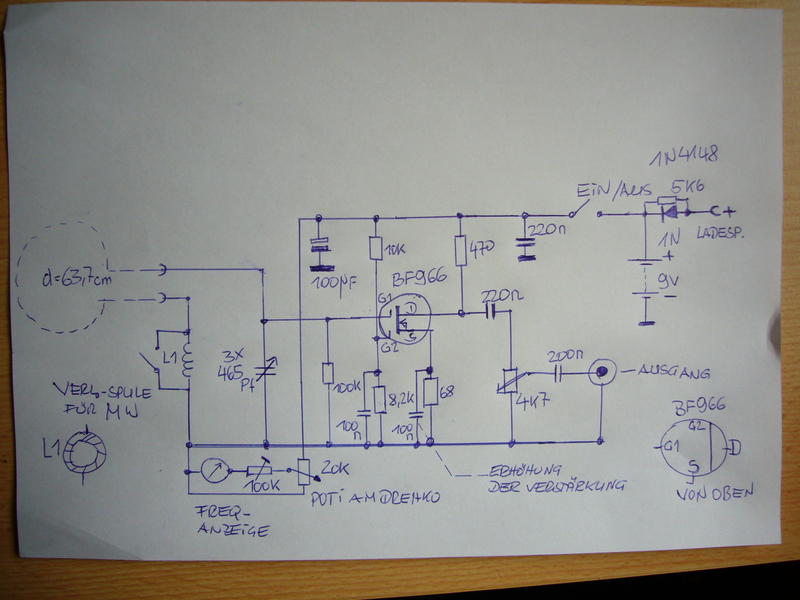 1N4148
EIN/AUS
5K6
C+
LADESP.
1N
220n
+
9V
−
d=63,7cm
100µF
10K
470
BF966
G1
D
S
G2
220n
L1
3X
465
Pf
100K
100
n
8,2K
100
n
68
4K7
200n
AUSGANG
VERL-SPULE
FÜR MW
L1
BF966
G2
G1
D
S
VON OBEN
100K
20K
POTI AM DREHKO
ERHÖHUNG
DER VERSTÄRKUNG
FREQ-
ANZEIGE